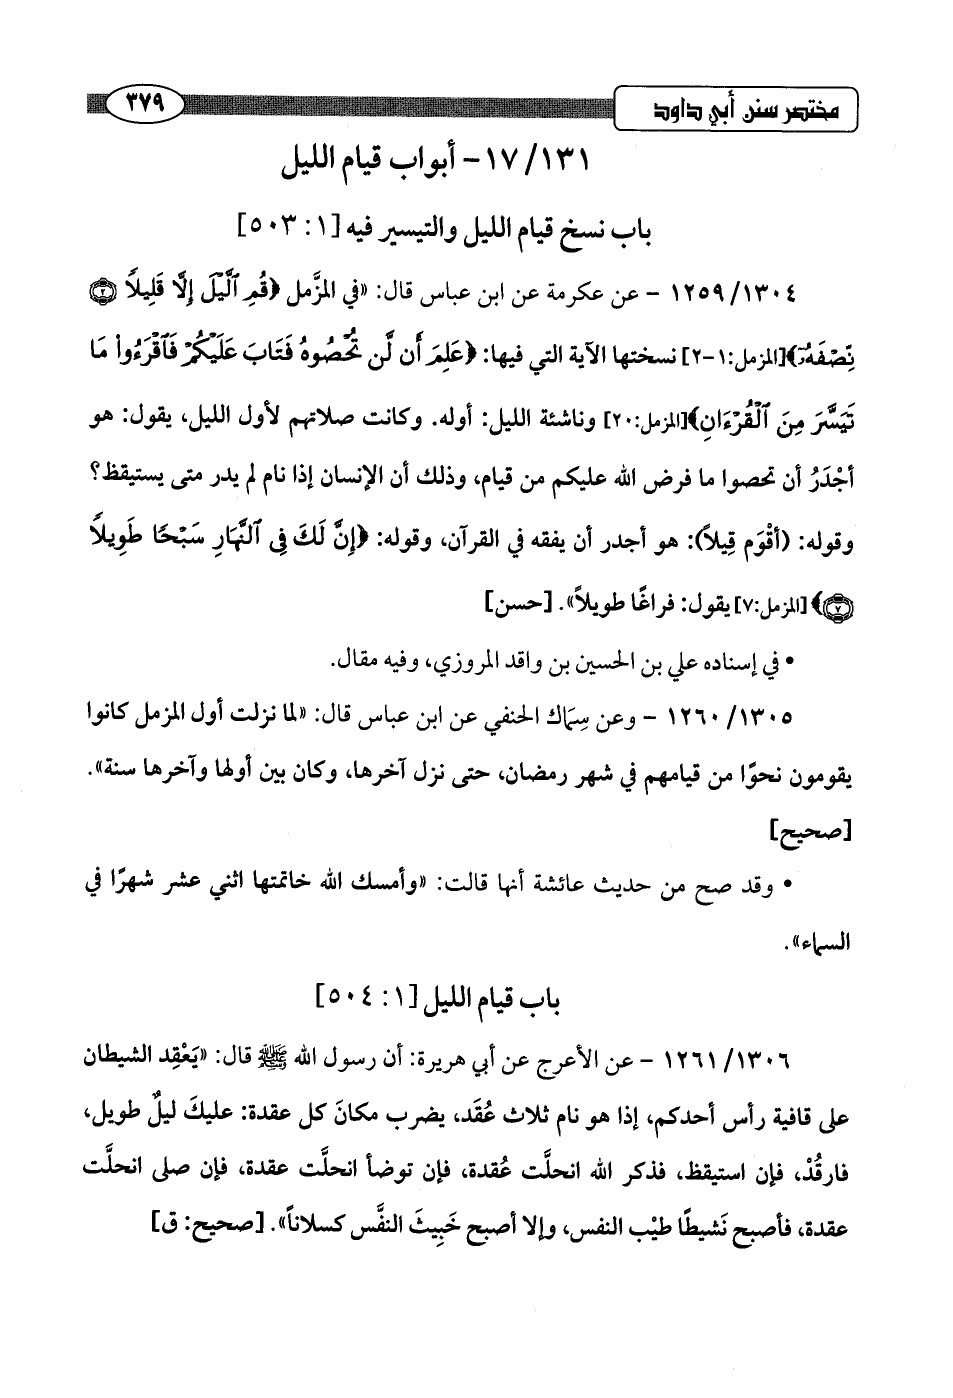 مختصر سنن أبي داود ٣٧٩
١٧/١٣١- أبواب قيام الليل
باب نسخ قيام الليل والتيسير فيه [١: ٥٠٣]
١٢٥٩/١٣٠٤ - عن عكرمة عن ابن عباس قال: «في المزَّمل ﴿قُمِ ٱلَّيْلَ إِلَّا قَلِيلاً ۝٢
نِّصْفَهُۥٓ﴾[المزمل:١-٢] نسختها الآية التي فيها: ﴿عَلِمَ أَن لَّن تُحْصُوهُ فَتَابَ عَلَيْكُمْ فَٱقْرَءُواْ مَا
تَيَسَّرَ مِنَ ٱلْقُرْءَانِ﴾[المزمل:٢٠] وناشئة الليل: أوله. وكانت صلاتهم لأول الليل، يقول: هو
أجْدَرُ أن تحصوا ما فرض الله عليكم من قيام، وذلك أن الإنسان إذا نام لم يدر متى يستيقظ؟
وقوله: (أقْوَم قِيلاً): هو أجدر أن يفقه في القرآن، وقوله: ﴿إِنَّ لَكَ فِى ٱلنَّهَارِ سَبْحًا طَوِيلاً
۝٧﴾[المزمل:٧] يقول: فراغًا طويلاً». [حسن]
• في إسناده علي بن الحسين بن واقد المروزي، وفيه مقال.
١٢٦٠/١٣٠٥ - وعن سِمَاك الحنفي عن ابن عباس قال: «لما نزلت أول المزمل كانوا
يقومون نحوًا من قيامهم في شهر رمضان، حتى نزل آخرها، وكان بين أولها وآخرها سنة».
[صحيح]
• وقد صح من حديث عائشة أنها قالت: «وأمسك الله خاتمتها اثني عشر شهرًا في
السماء».
باب قيام الليل [١: ٥٠٤]
١٢٦١/١٣٠٦ - عن الأعرج عن أبي هريرة: أن رسول الله ﷺ قال: «يَعْقِد الشيطان
على قافية رأس أحدكم، إذا هو نام ثلاث عُقَد، يضرب مكانَ كل عقدة: عليكَ ليلٌ طويل،
فارقُدْ، فإن استيقظ، فذكر الله انحلَّت عُقدة، فإن توضأ انحلَّت عقدة، فإن صلى انحلَّت
عقدة، فأصبح نَشيطًا طيْب النفس، وإلا أصبح خَبِيثَ النفَّس كسلاناً». [صحيح: ق]